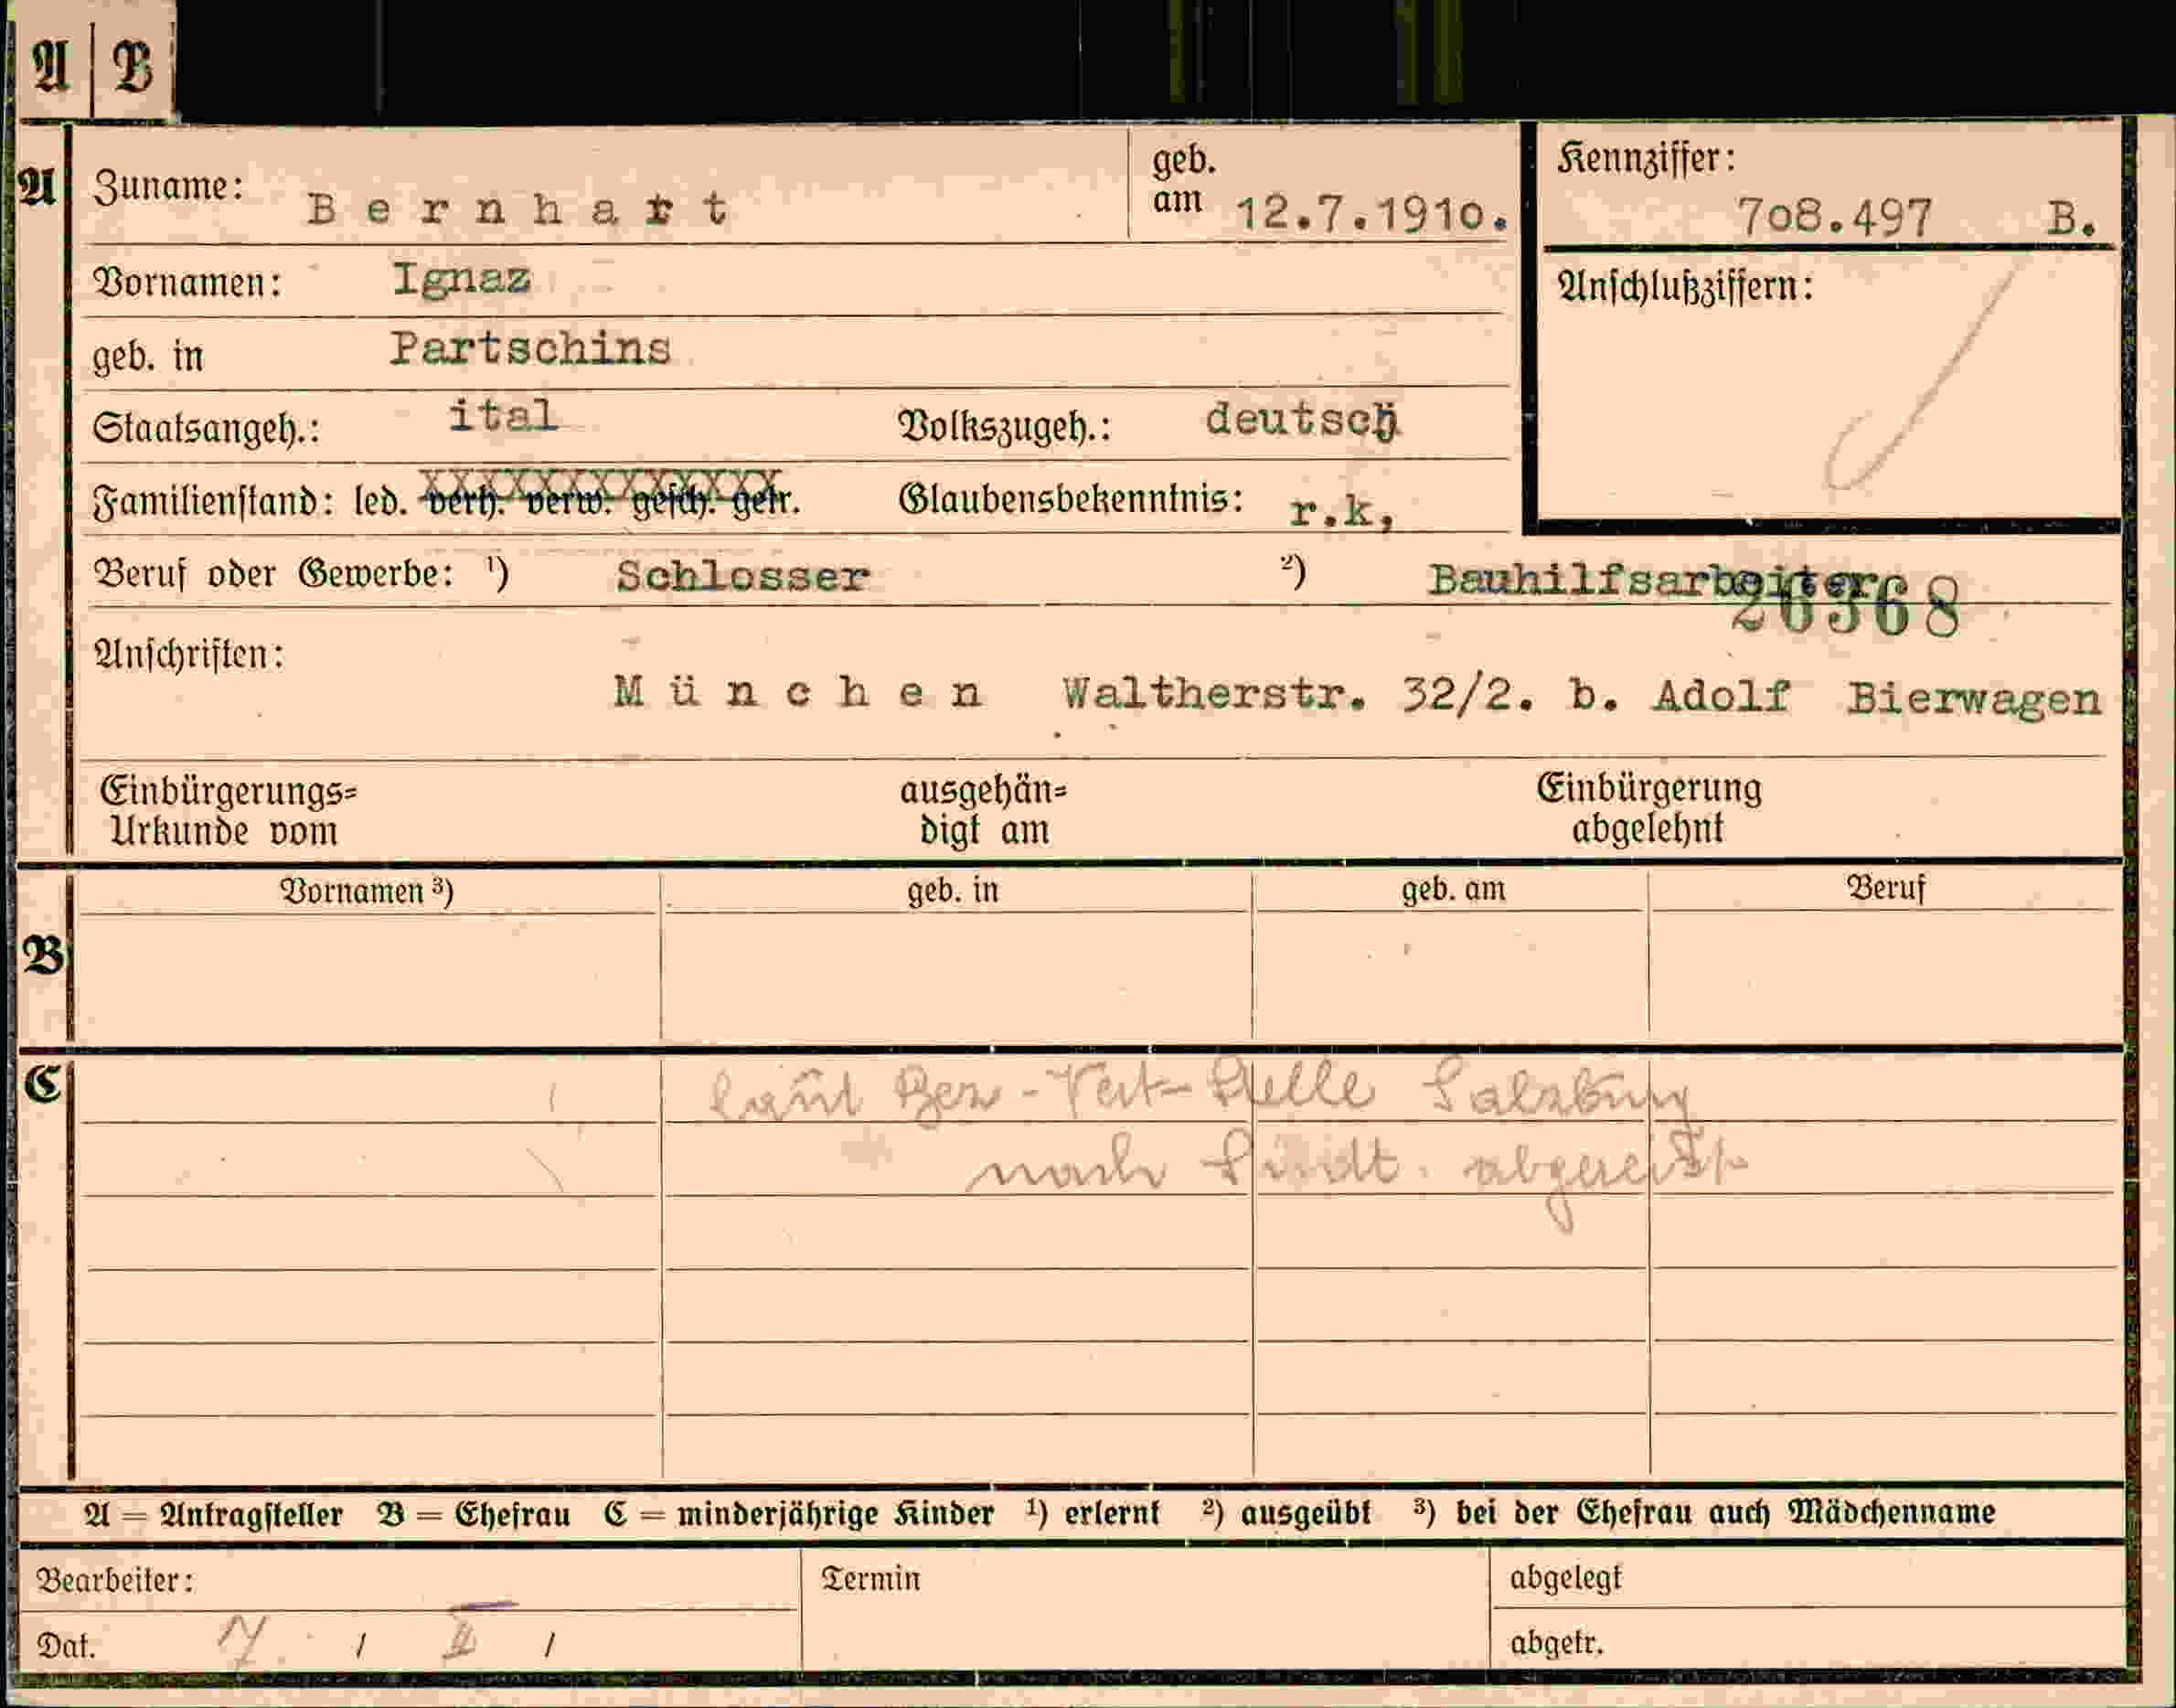 A | B
A Zuname: Bernhart geb. am 12.7.1910. Kennziffer: 708.497 B.
Vornamen: Ignaz Anschlußziffern:
geb. in Partschins
Staatsangeh.: ital Volkszugeh.: deutsch
Familienstand: led. verh. verw. gesch. getr. Glaubensbekenntnis: r.k,
Beruf oder Gewerbe: 1) Schlosser 2) Bauhilfsarbeiter
26368
Anschriften:
München Waltherstr. 32/2. b. Adolf Bierwagen
Einbürgerungs= ausgehän= Einbürgerung
Urkunde vom digt am abgelehnt
Vornamen 3) geb. in geb. am Beruf
B
C laut Stelle Salzburg
nach abgereist
A = Antragsteller B = Ehefrau C = minderjährige Kinder 1) erlernt 2) ausgeübt 3) bei der Ehefrau auch Mädchenname
Bearbeiter: Termin abgelegt
Dat. / / abgetr.